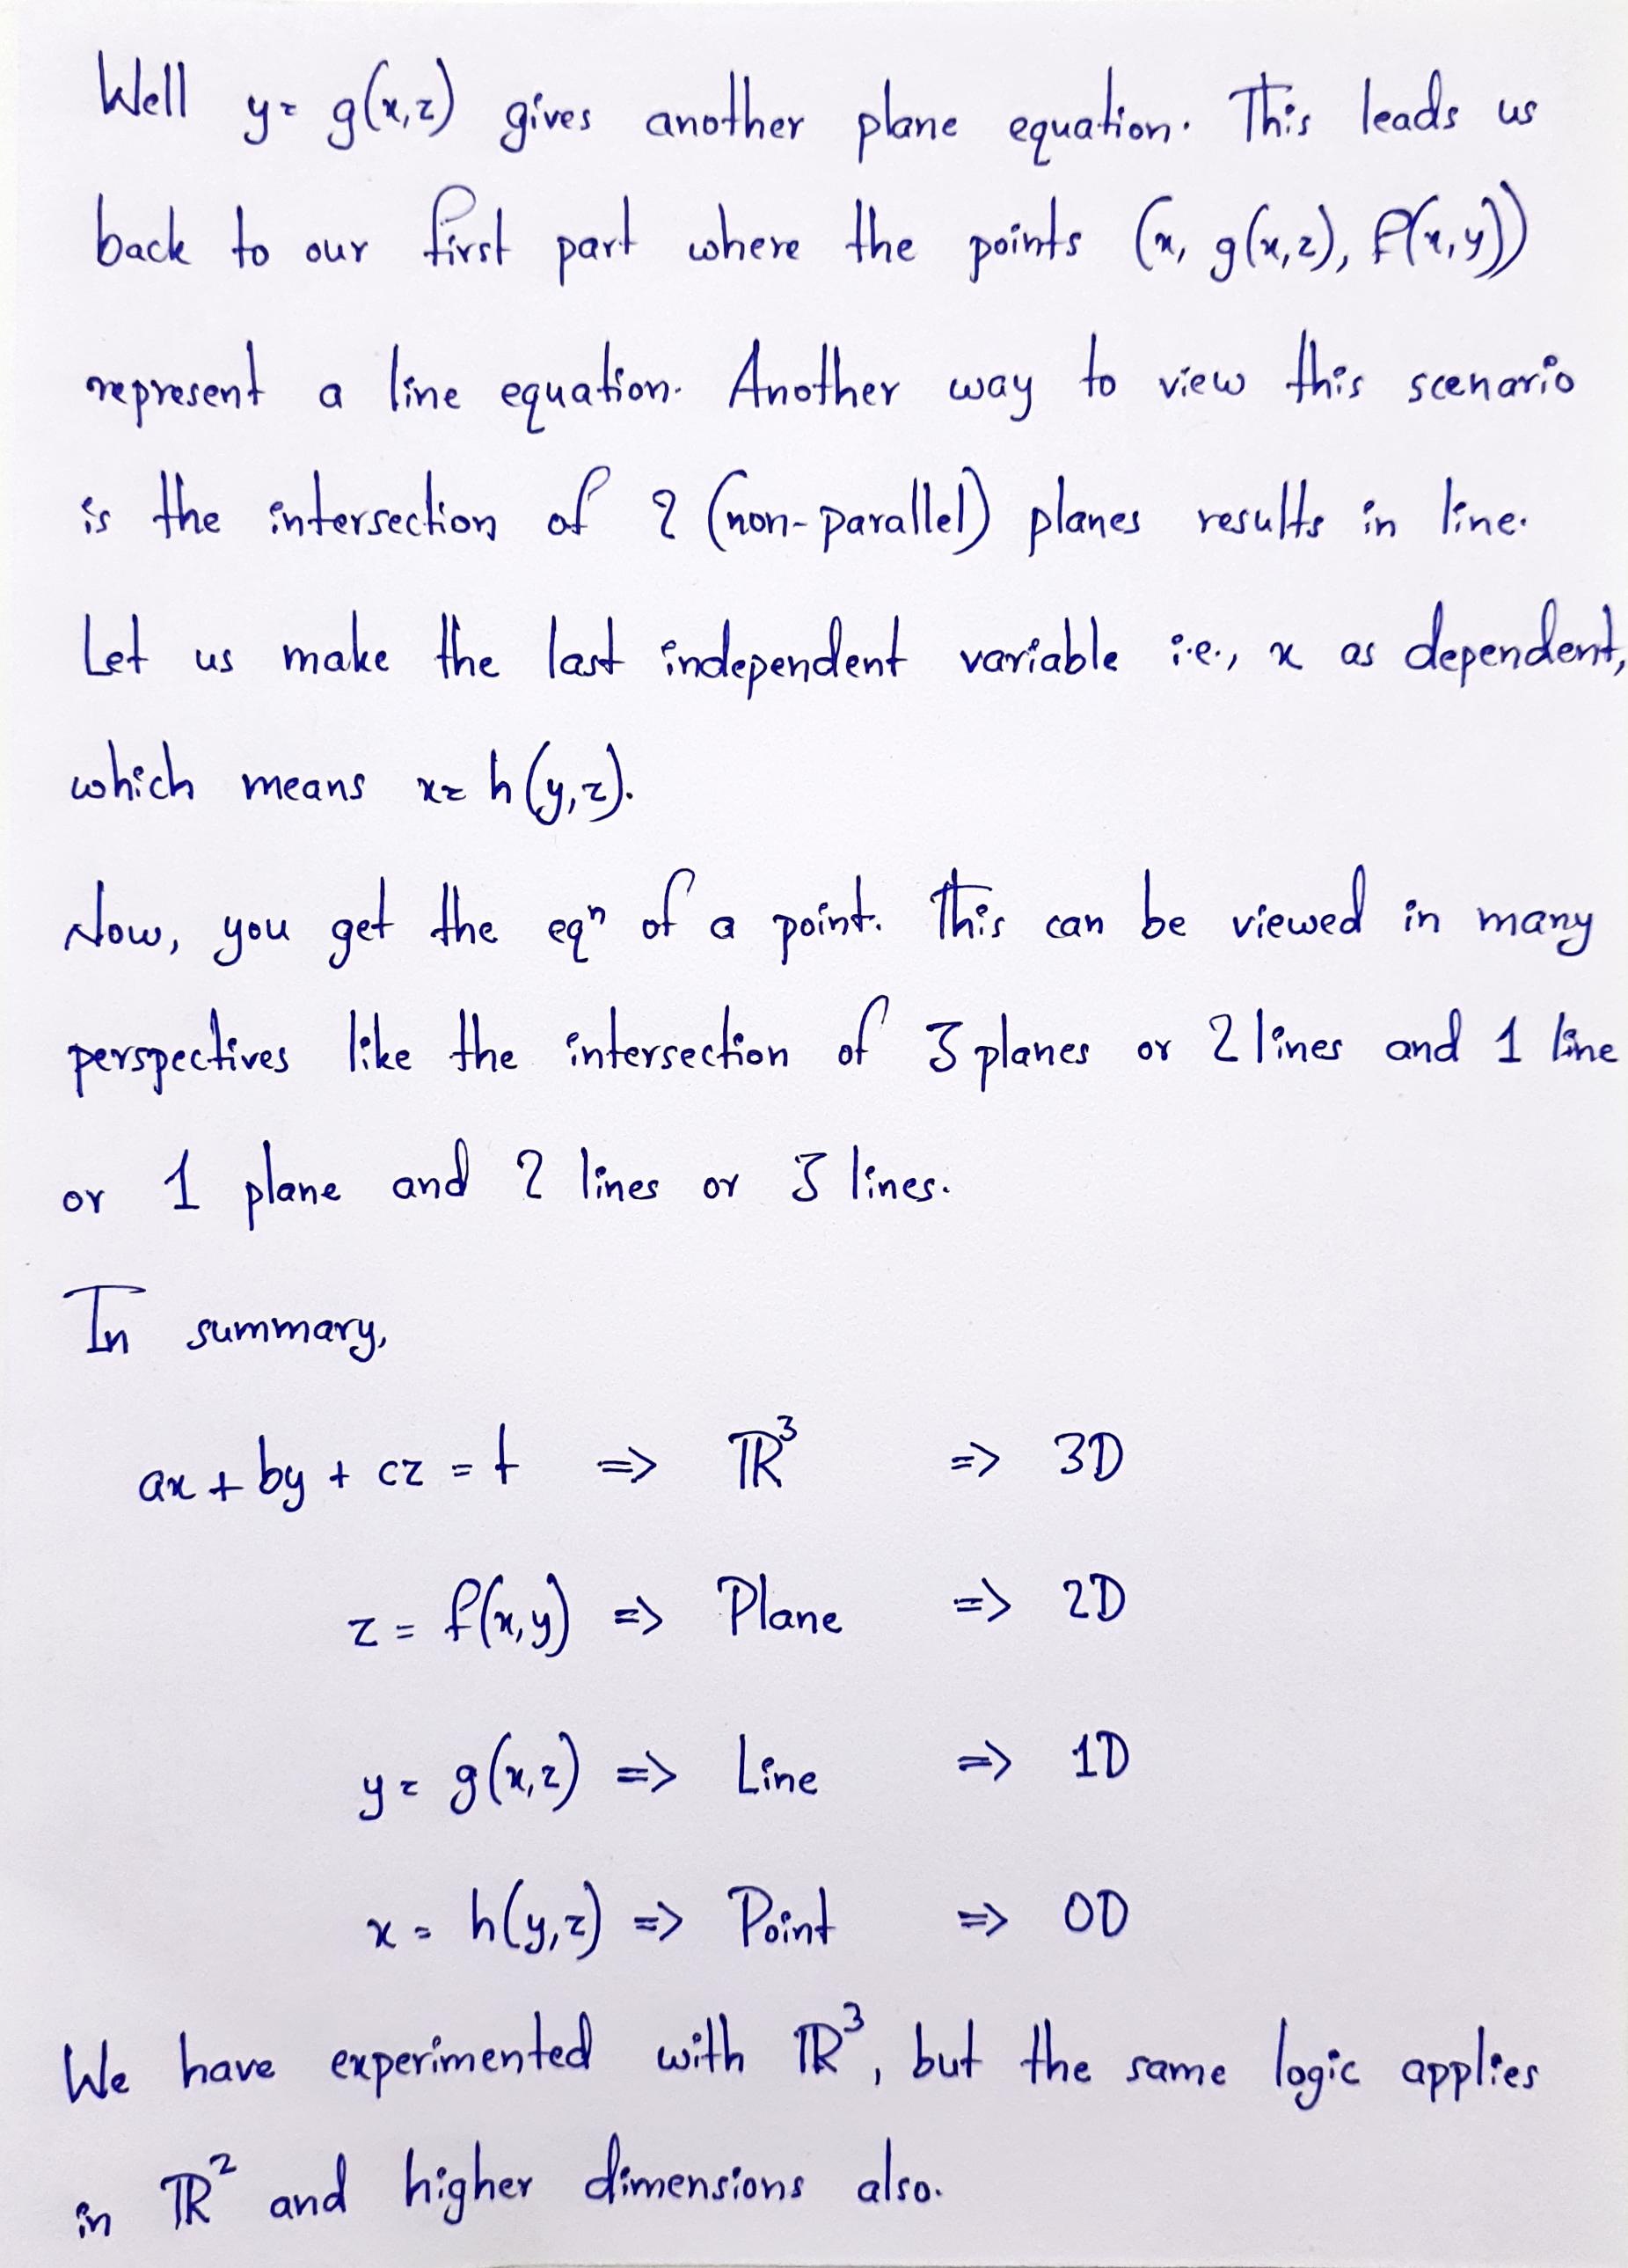 Well y = g(x,z) gives another plane equation. This leads us
back to our first part where the points (x, g(x,z), f(x,y))
represent a line equation. Another way to view this scenario
is the intersection of 2 (non-parallel) planes results in line.
Let us make the last independent variable i.e., x as dependent,
which means x = h(y,z).
Now, you get the eqⁿ of a point. This can be viewed in many
perspectives like the intersection of 3 planes or 2 lines and 1 line
or 1 plane and 2 lines or 3 lines.
In summary,
ax + by + cz = t => ℝ³ => 3D
z = f(x,y) => Plane => 2D
y = g(x,z) => Line => 1D
x = h(y,z) => Point => 0D
We have experimented with ℝ³, but the same logic applies
in ℝ² and higher dimensions also.